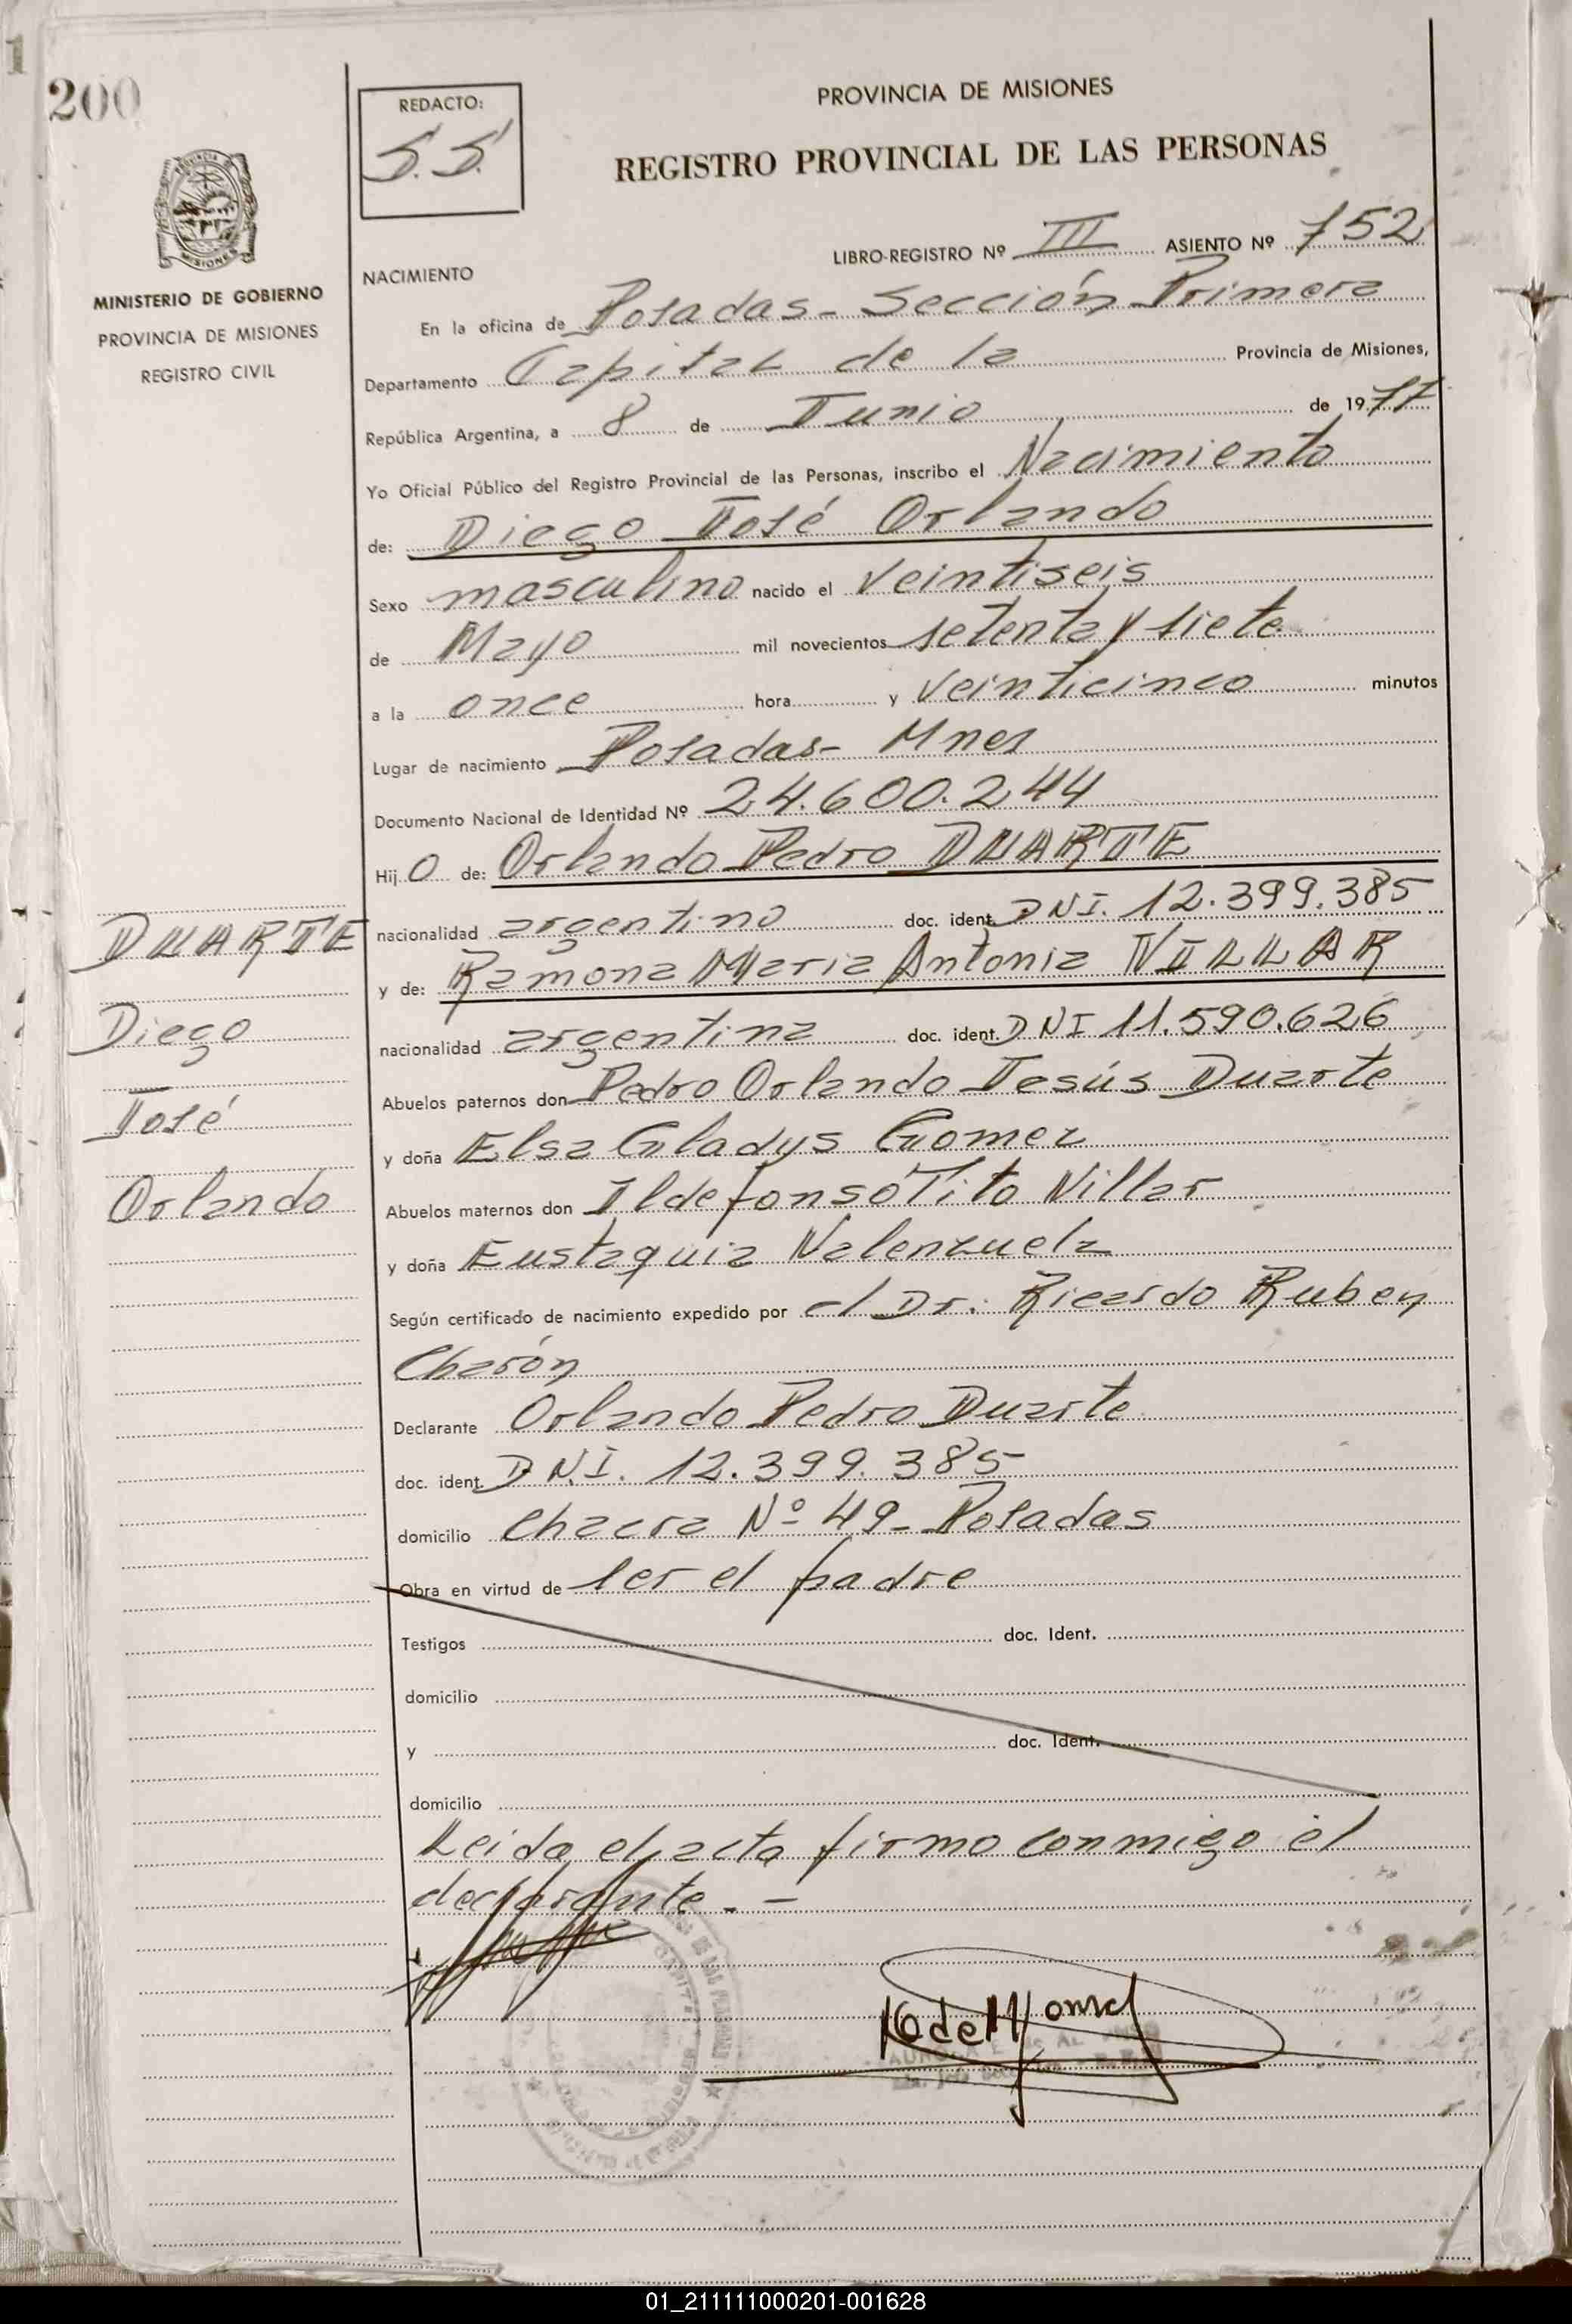 200
REDACTO:
S.S.
PROVINCIA DE MISIONES
REGISTRO PROVINCIAL DE LAS PERSONAS
MINISTERIO DE GOBIERNO
PROVINCIA DE MISIONES
REGISTRO CIVIL
LIBRO-REGISTRO Nº III ASIENTO Nº 752
NACIMIENTO
En la oficina de Posadas- Sección Primera
Departamento Capital de la Provincia de Misiones,
República Argentina, a 8 de Junio de 1977
Yo Oficial Público del Registro Provincial de las Personas, inscribo el Nacimiento
de: Diego José Orlando
Sexo masculino nacido el veintiseis
de Mayo mil novecientos setenta y siete
a la once hora y veinticinco minutos
Lugar de nacimiento Posadas- Mnes
Documento Nacional de Identidad Nº 24.600.244
Hijo de: Orlando Pedro DUARTE
nacionalidad argentino doc. ident. DNI. 12.399.385
y de: Ramona Maria Antonia VILLAR
nacionalidad argentina doc. ident. DNI 11.590.626
Abuelos paternos don Pedro Orlando Jesús Duarte
y doña Elsa Gladys Gomez
Abuelos maternos don Ildefonso Tito Villar
y doña Eustaquia Valenzuela
Según certificado de nacimiento expedido por el Dr. Ricardo Ruben
Charón
Declarante Orlando Pedro Duarte
doc. ident. D.N.I. 12.399.385
domicilio Chacra Nº 49- Posadas
Obra en virtud de ser el padre
Testigos doc. Ident.
domicilio
y doc. Ident.
domicilio
Leida el acta firmo conmigo el
declarante.-
DUARTE
Diego
José
Orlando
01_211111000201-001628